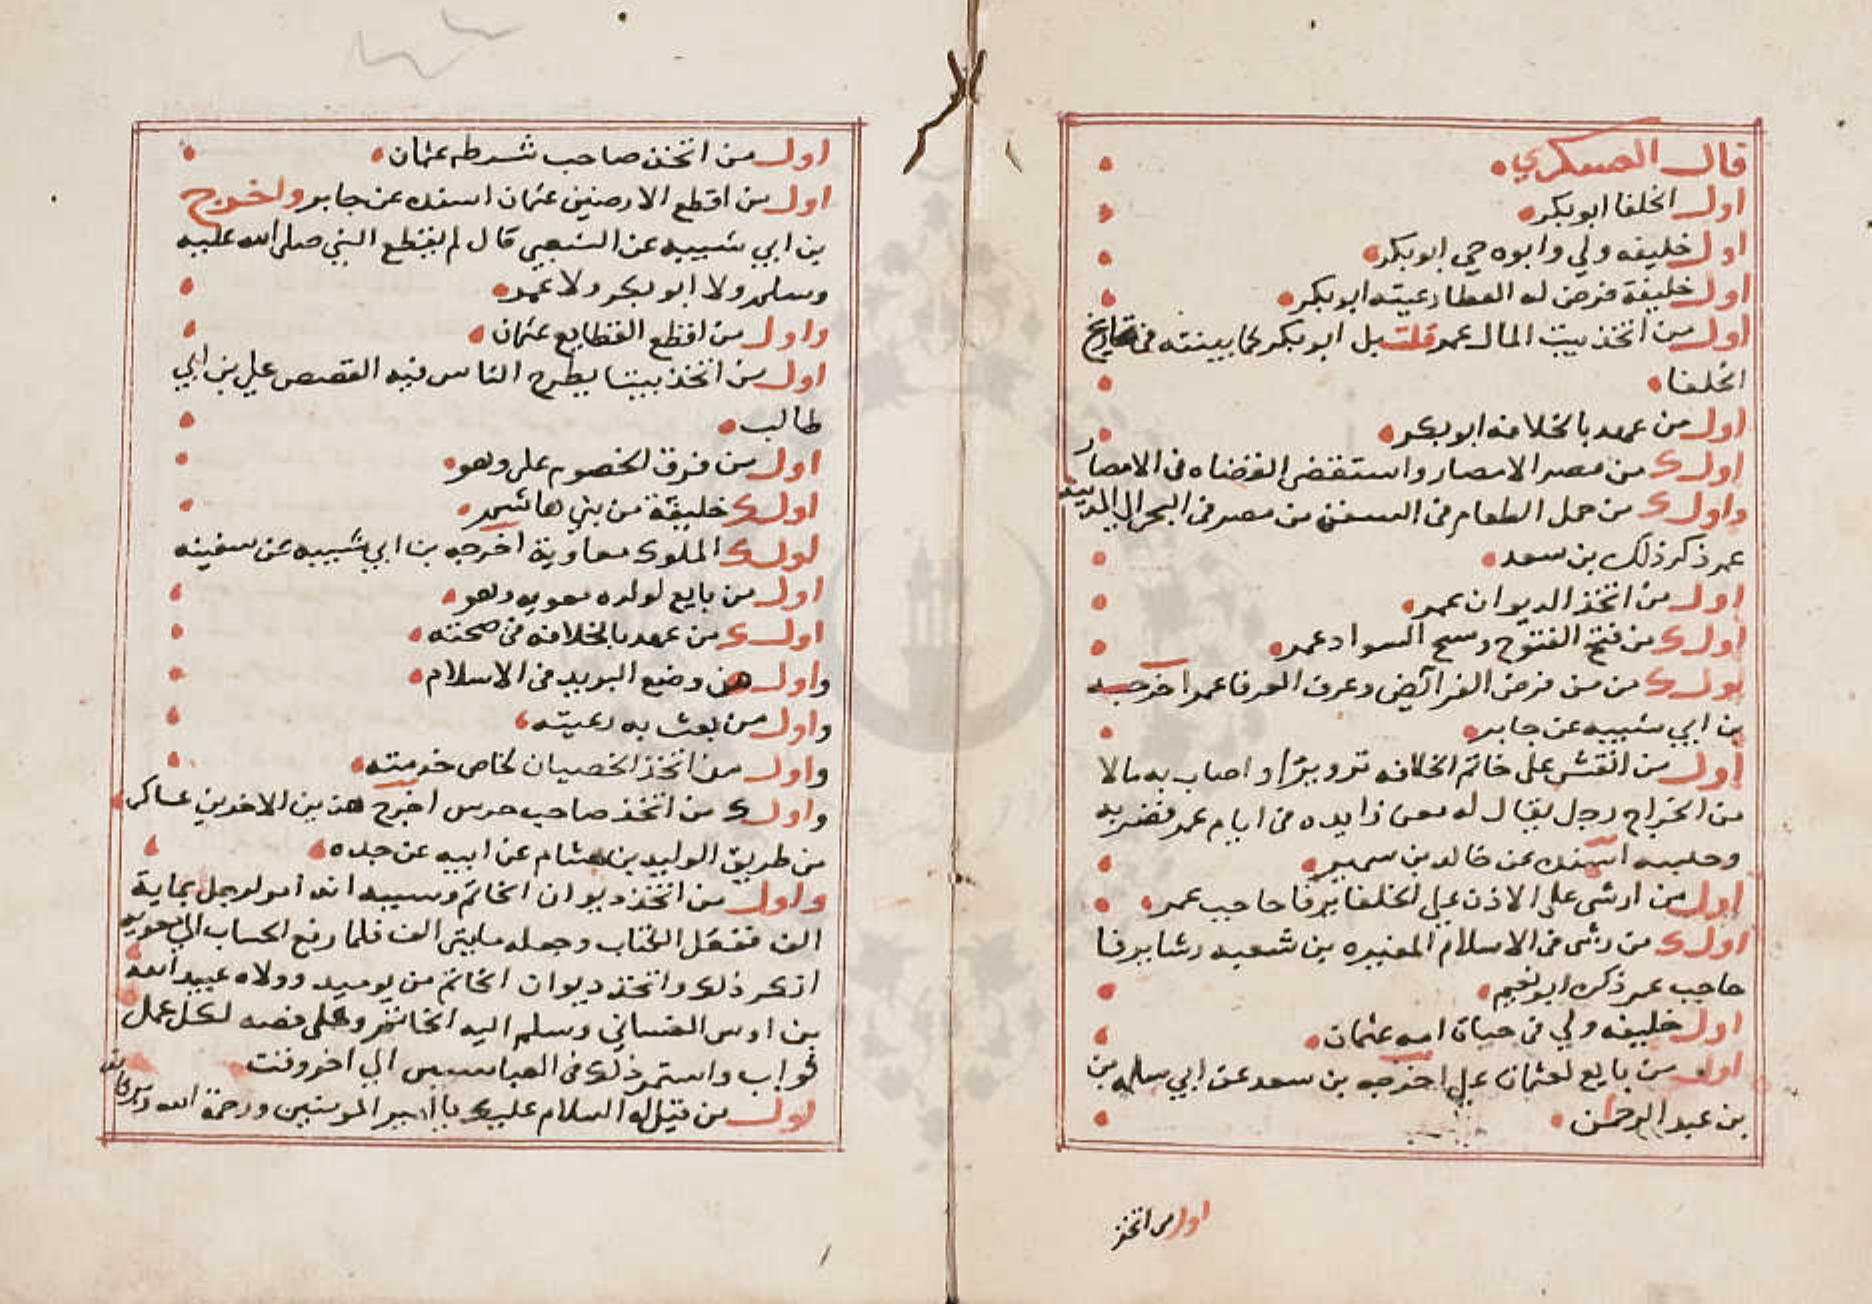 قال العسكري
اول الخلفا ابو بكر
اول خليفه ولي وابوه حي ابو بكر
اول خليفة فرض له العطا رعيته ابو بكر
اول من اتخذ بيت المال عمر قلت بل ابو بكر كما بينته في تاريخ
الخلفا
اول من عهد بالخلافه ابو بكر
اول من مصر الامصار واستقضى القضاه في الامصار
واول من حمل الطعام في السفن من مصر في البحر الى المدينه
عمر ذكر ذلك بن سعد
اول من اتخذ الديوان عمر
اول من فتح الفتوح ومسح السواد عمر
اول من من فرض الفرائض وعرف العرفا عمر اخرجه
بن ابي شيبه عن جابر
اول من انتقش على خاتم الخلافه تزويرًا واصاب به مالا
من الخراج رجل يقال له معن زايده في ايام عمر فضربه
وحبسه اسنده عن خالد بن سمير
اول من ارشى على الاذن على الخلفا يرفا حاجب عمر
اول من رشى في الاسلام المغيره بن شعبه رشا يرفا
حاجب عمر ذكره ابو نعيم
اول خليفه ولي في حياة امه عثمان
اول من بايع لعثمان علي اخرجه بن سعد عن ابي سلمه بن
بن عبد الرحمن
اول من اتخذ
اول من اتخذ صاحب شرطه عثمان
اول من اقطع الارضين عثمان اسنده عن جابر واخرج
بن ابي شيبه عن الشعبي قال لم يقطع النبي صلى الله عليه
وسلم ولا ابو بكر ولا عمر
واول من اقطع القطايع عثمان
اول من اتخذ بيتا يطرح الناس فيه القصص علي بن ابي
طالب
اول من فرق الخصوم على وهو
اول خليفة من بني هاشم
اول الملوك معاوية اخرجه بن ابي شيبه عن سفينه
اول من بايع لولده معويه وهو
اول من عهد بالخلافه في صحته
واول من وضع البريد في الاسلام
واول من بعث به رعيته
واول من اتخذ الخصيان لخاص خدمته
واول من اتخذ صاحب حرس اخرج هذين الاخرين عساكر
من طريق الوليد بن هشام عن ابيه عن جده
واول من اتخذ ديوان الخاتم وسببه انه امر لرجل بماية
الف ففعل الكتاب وجعله مايتى الف فلما رفع الحساب الى معويه
انكر ذلك واتخذ ديوان الخاتم من يوميد وولاه عبيد الله
بن اوس الغساني وسلم اليه الخاتم وعلى فصه لكل عمل
ثواب واستمر ذلك في العباسيين الي اخر وقت
اول من قيل له السلام عليك يا امير المومنين ورحمة الله وبركاته